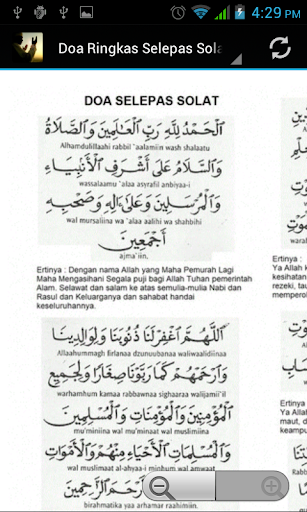 4:29 PM
Doa Ringkas Selepas Sola
DOA SELEPAS SOLAT
الْحَمْدُ لِلَّهِ رَبِّ الْعَالَمِينَ وَالصَّلَاةُ
Alhamdulillaahi rabbil `aalamiin wash shalaatu
وَالسَّلَامُ عَلَى أَشْرَفِ الْأَنْبِيَاءِ
wassalaamu `alaa asyrafil anbiyaa-i
وَالْمُرْسَلِينَ وَعَلَى آلِهِ وَصَحْبِهِ
wal mursaliina wa `alaa aalihi wa shahbihi
أَجْمَعِينَ
ajma'iin.
Ertinya : Dengan nama Allah yang Maha Pemurah Lagi
Maha Mengasihani Segala puji bagi Allah Tuhan pemerintah
Alam. Selawat dan salam ke atas semulia-mulia Nabi dan
Rasul dan Keluarganya dan sahabat handai
keseluruhannya.
اَللَّهُمَّ اغْفِرْلَنَا ذُنُوبَنَا وَلِوَالِدِينَا
Allaahummagh firlanaa dzunuubanaa waliwaalidiinaa
وَارْحَمْهُمْ كَمَا رَبَّوْنَا صِغَارًا وَلِجَمِيعِ
warhamhum kamaa rabbawnaa sighaaraa walijamii'il
الْمُؤْمِنِينَ وَالْمُؤْمِنَاتِ وَالْمُسْلِمِينَ
mu'miniina wal mu'minaat wal muslimiina
وَالْمُسْلِمَاتِ الْأَحْيَاءِ مِنْهُمْ وَالْأَمْوَاتِ
wal muslimaat al-ahyaa-i minhum wal amwaat
بِرَحْمَتِكَ يَا أَرْحَمَ الرَّاحِمِينَ
birahmatika yaa arhamar raahimiin.
Ertinya :
Ya Allah k
kesihatan
rezeki, tau
Ertinya
Ya Alla
maut, d
keampu